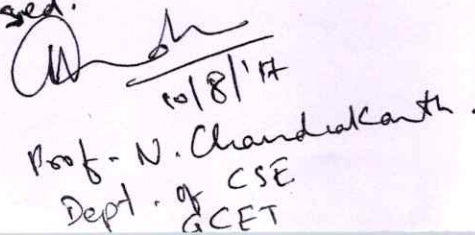 10/8/17
Prof. N. Chandrakanth.
Dept. of CSE
GCET